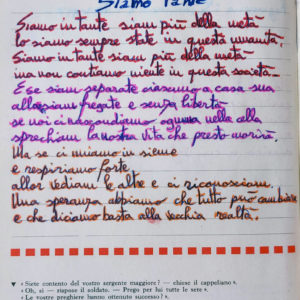 Siamo tante
Siamo in tante siam più della metà
lo siamo sempre state in questa umanità.
Siamo in tante siam più della metà
ma non contiamo niente in questa società.
E se siam separate ciascuno a casa sua
allor siam fregate e senza libertà
se noi ci nascondiamo ognuna nella cella
sprechiam la nostra vita che presto morirà.
Ma se ci uniamo insieme
e respiriamo forte
allor vediam le altre e ci riconosciam.
Una speranza abbiamo che tutto può cambiare
e che diciamo basta alla vecchia realtà.
▼ « Siete contento del vostro sergente maggiore? — chiese il cappellano ».
« Oh, sì — rispose il soldato. — Prego per lui tutte le sere ».
« Le vostre preghiere hanno ottenuto successo? ».